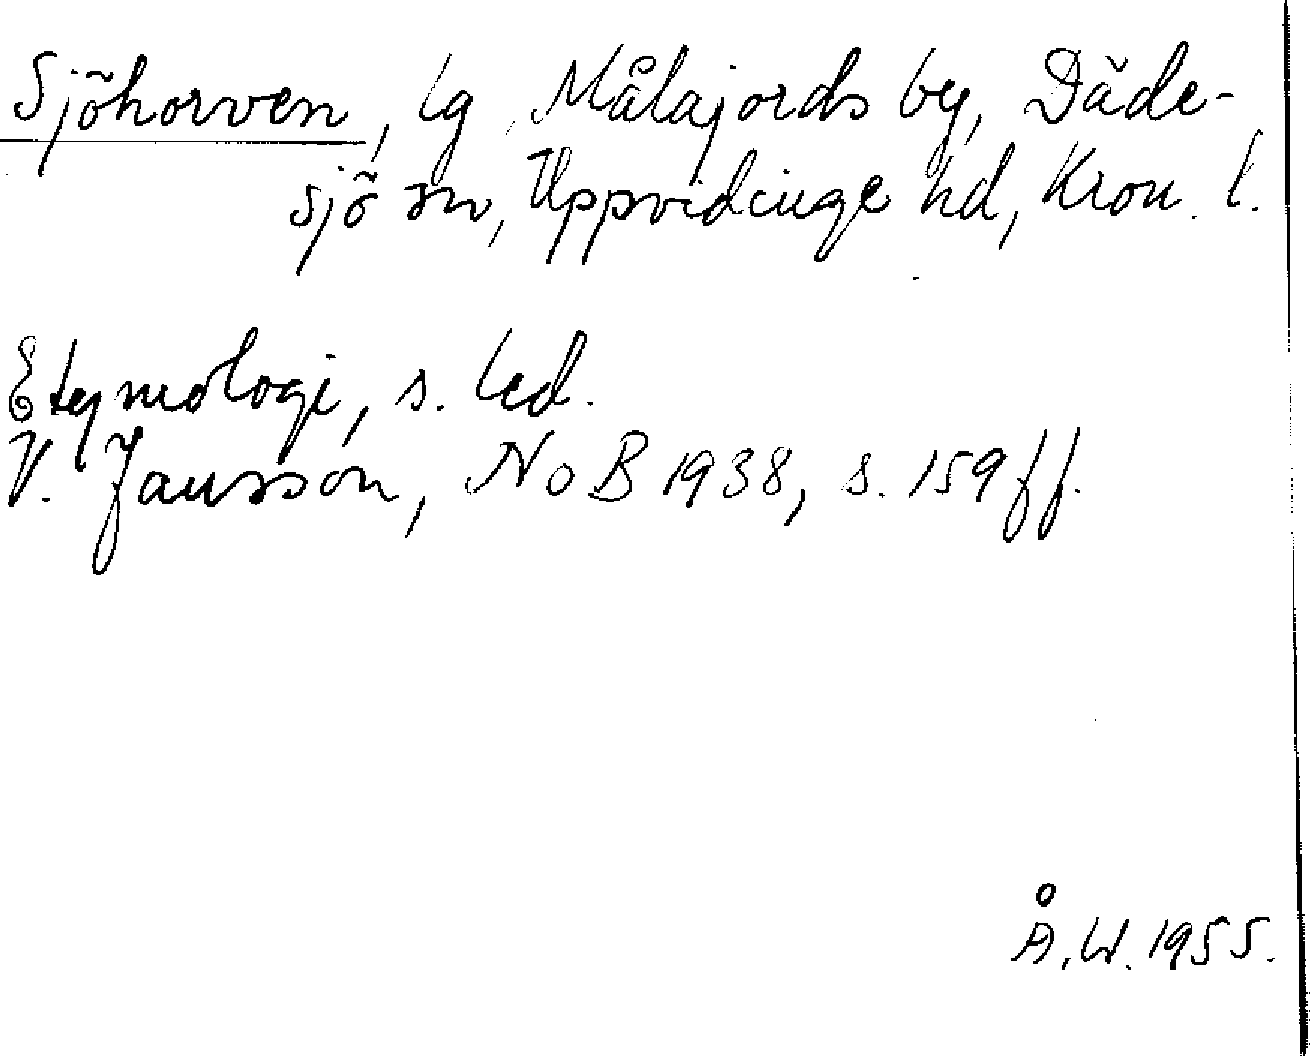 Sjöhorven, lg, Målajords by, Däde-
sjö sn, Uppvidinge hd, Kron. l.
Etymologi, s. led.
V. Jansson, NoB 1938, s. 159 ff.
Å. W. 1955.